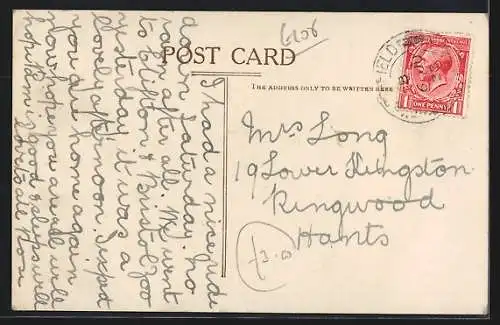 6206
POST CARD
THE ADDRESS ONLY TO BE WRITTEN HERE
ONE PENNY
1
1
Mrs Long
19 Lower Kingston
Ringwood
Hants
£3.00
I had a nice ride
down Saturday. no
rain after all. We went
to Clifton & Bristol Zoo
yesterday, it was a
lovely afternoon. Expect
you are home again
now hope you are all well
hope Mum is good & sleeps well
Love to all Rose